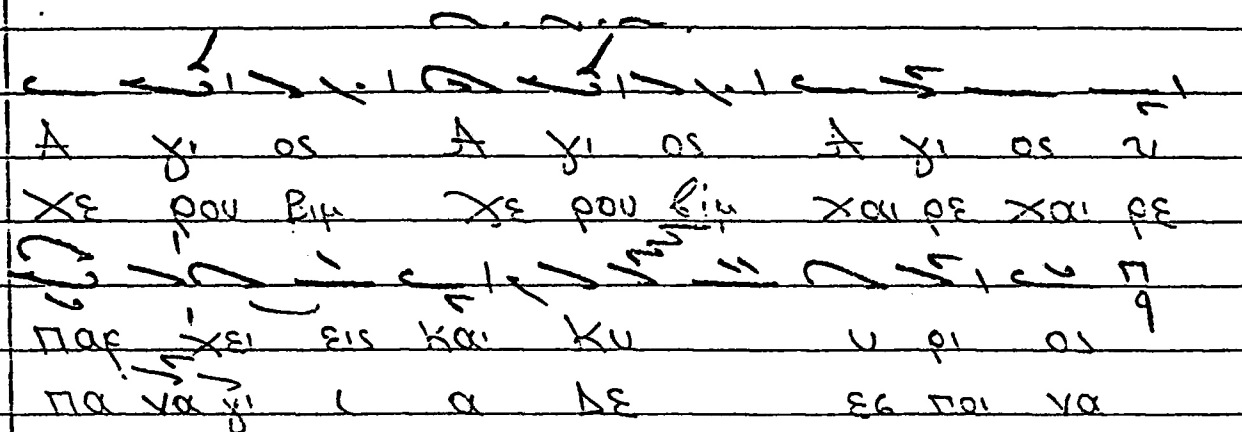 Α γι ος Α γι ος Α γι ος υ
χε ρου βιμ χε ρου βίμ χαι ρε χαι ρε
παρ χει εις και Κυ υ ρι ος
πα να γι ι α Δε εσ ποι να